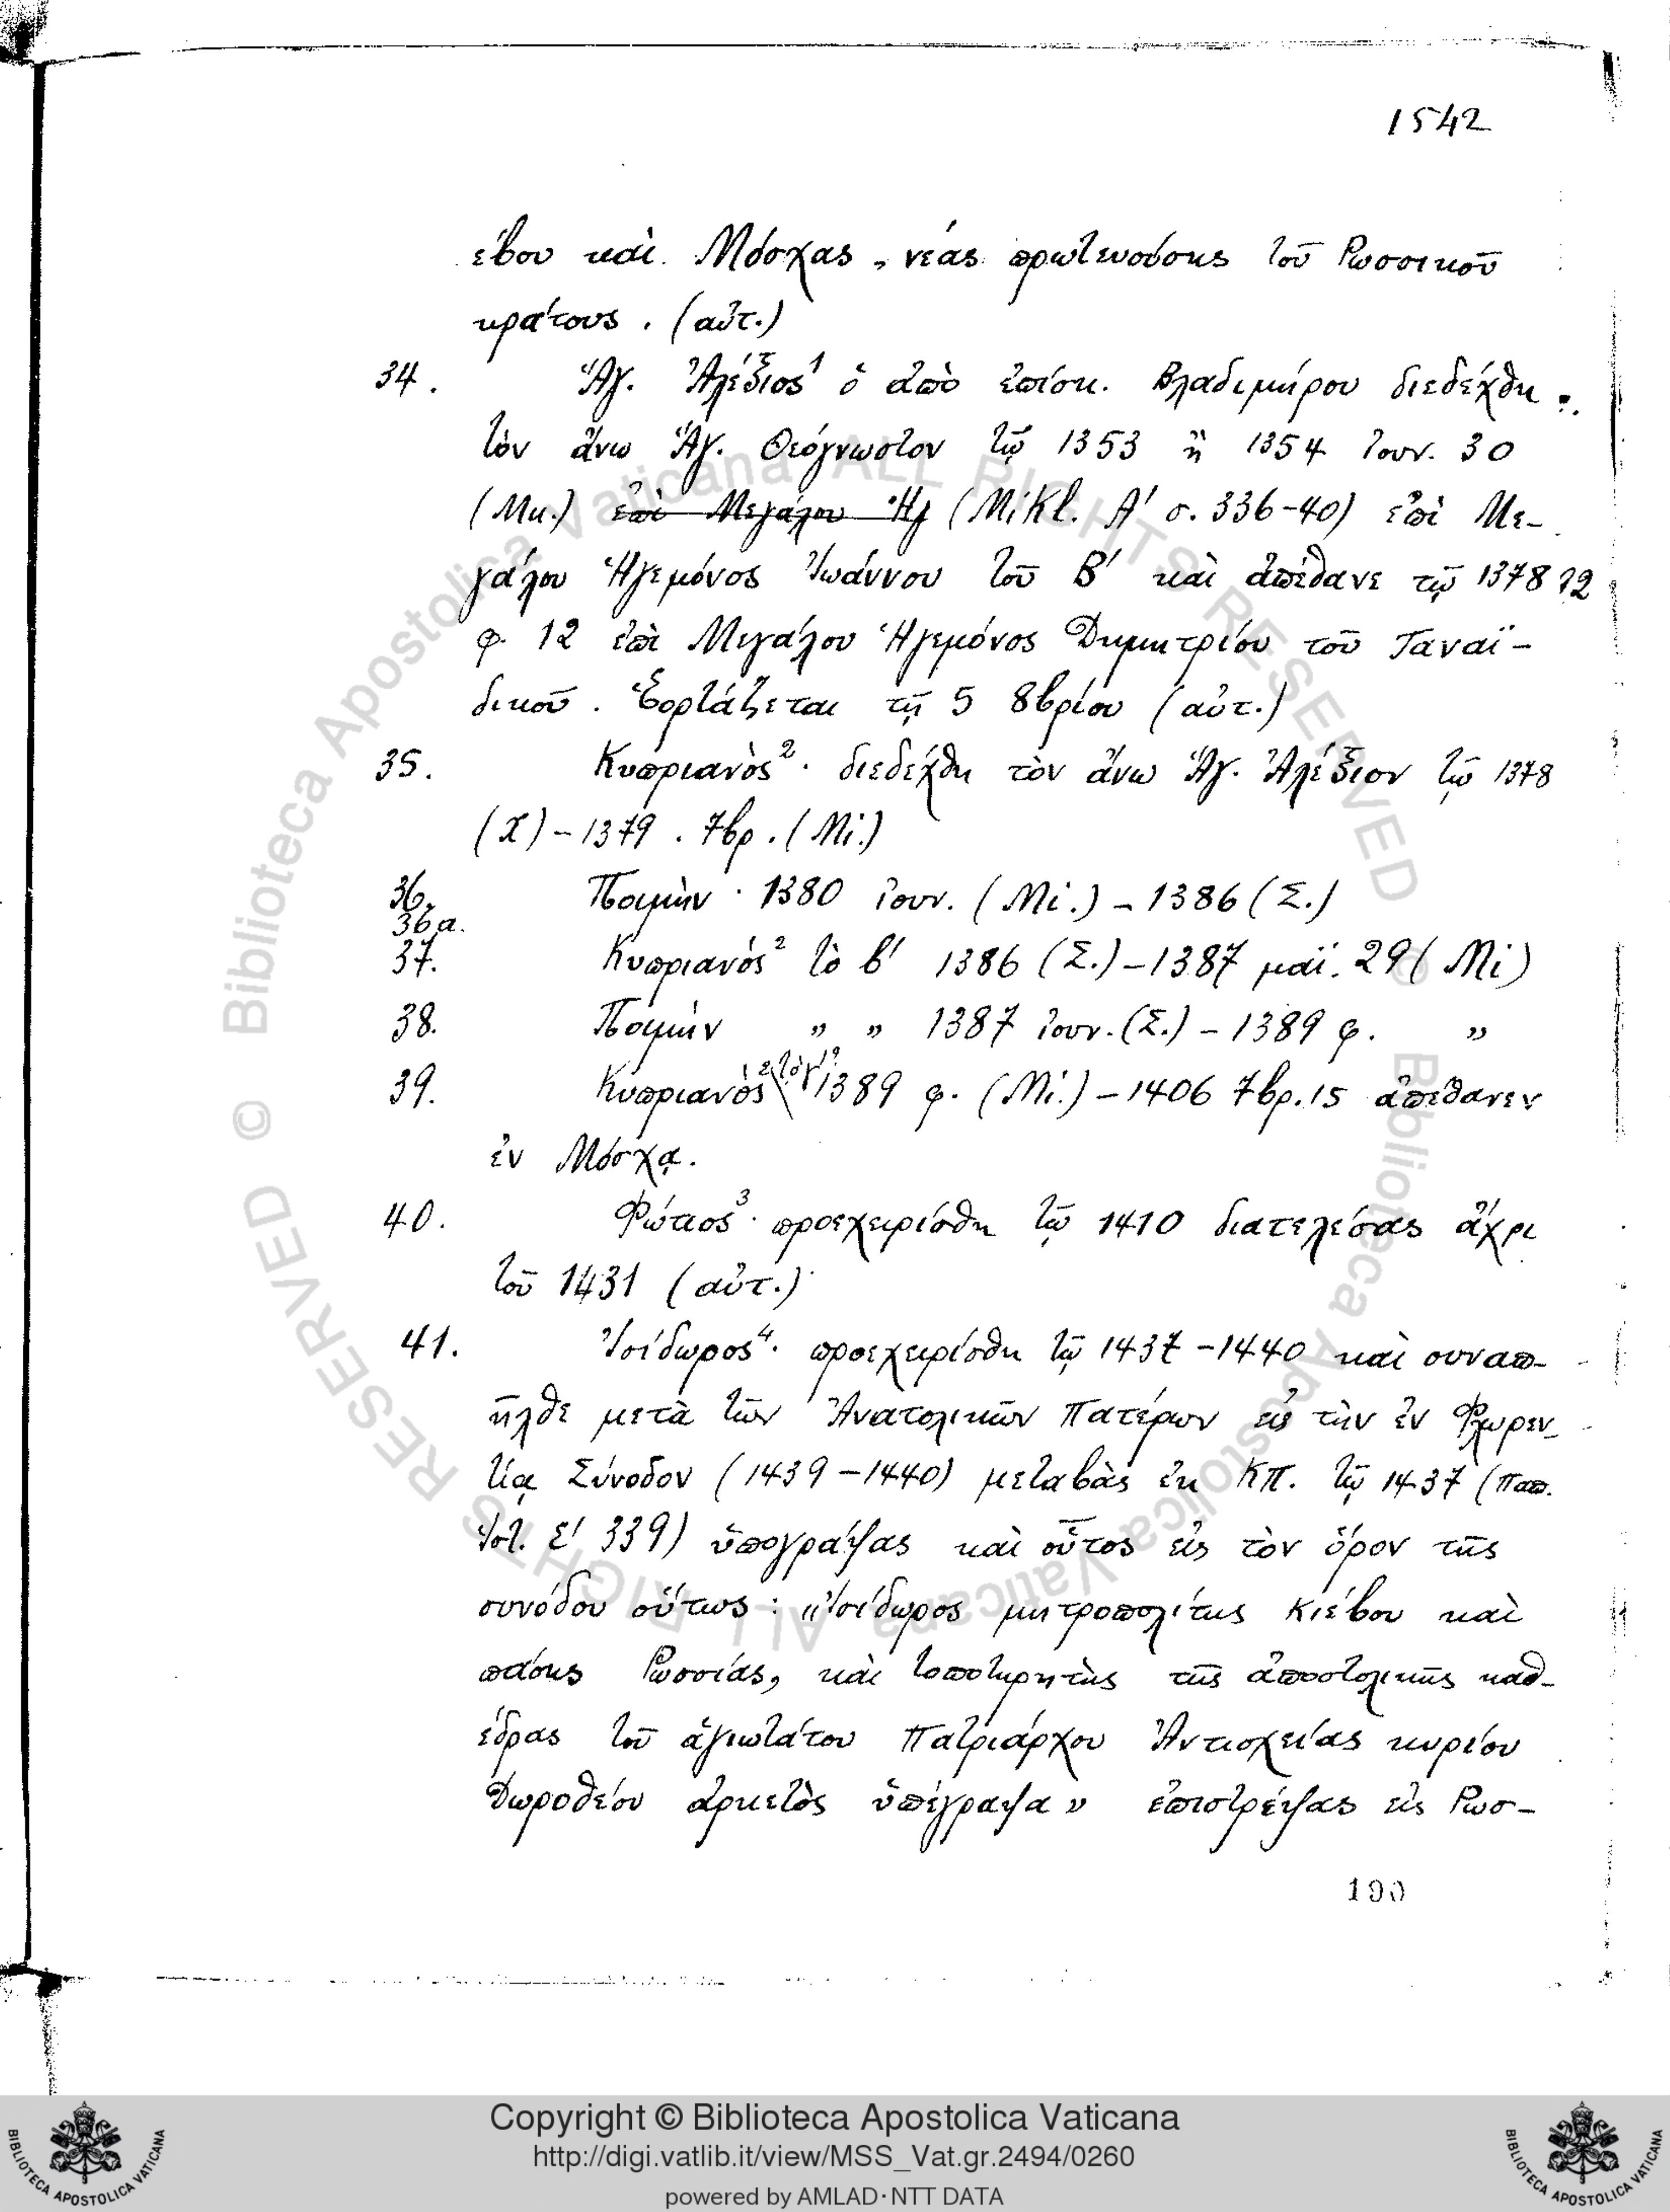 1542
έβου καὶ Μόσχας, νέας πρωτευούσης τοῦ Ρωσσικοῦ
κράτους. (αὐτ.)
34. Ἅγ. Ἀλέξιος¹ ὁ ἀπὸ ἐπίσκ. Βλαδιμήρου διεδέχθη
τὸν ἄνω Ἅγ. Θεόγνωστον τῷ 1353 ἢ 1354 ἰουν. 30
(Μι.) ἐπὶ Μεγάλου Ἡγ (Mikl. Α' σ. 336-40) ἐπὶ Με-
γάλου Ἡγεμόνος Ἰωάννου τοῦ Β' καὶ ἀπέθανε τῷ 1378 12
φ. 12 ἐπὶ Μεγάλου Ἡγεμόνος Δημητρίου τοῦ Ταναϊ-
δικοῦ. Ἑορτάζεται τῇ 5 8βρίου (αὐτ.)
35. Κυπριανὸς². διεδέχθη τὸν ἄνω Ἅγ. Ἀλέξιον τῷ 1378
(Χ) - 1379. 7βρ. (Μi.)
36. Ποιμὴν · 1380 ἰουν. (Μi.) - 1386 (Σ.)
36a.
37. Κυπριανός² τὸ β' 1386 (Σ.) - 1387 μαΐ. 29 (Μi)
38. Ποιμὴν „ „ 1387 ἰουν. (Σ.) - 1389 φ. „
39. Κυπριανὸς² τὸ γ' 1389 φ. (Μi.) - 1406 7βρ. 15 ἀπέθανεν
ἐν Μόσχᾳ.
40. Φώτιος³. προεχειρίσθη τῷ 1410 διατελέσας ἄχρι
τοῦ 1431 (αὐτ.)
41. Ἰσίδωρος⁴. προεχειρίσθη τῷ 1437-1440 καὶ συναπ-
ῆλθε μετὰ τῶν Ἀνατολικῶν Πατέρων εἰς τὴν ἐν Φλωρεν-
τίᾳ Σύνοδον (1439-1440) μεταβὰς ἐκ ΚΠ. τῷ 1437 (Παπ.
Ἱστ. Ε' 339) ὑπογράψας καὶ οὗτος εἰς τὸν ὅρον τῆς
συνόδου οὕτως: «Ἰσίδωρος μητροπολίτης Κιέβου καὶ
πάσης Ρωσσίας, καὶ τοποτηρητὴς τῆς ἀποστολικῆς καθ-
έδρας τοῦ ἁγιωτάτου Πατριάρχου Ἀντιοχείας κυρίου
Δωροθέου ἀρκετὸς ὑπέγραψα» ἐπιστρέψας εἰς Ρωσ-
190
© Biblioteca Apostolica Vaticana ALL RIGHTS RESERVED
© Biblioteca Apostolica Vaticana ALL RIGHTS RESERVED
Copyright © Biblioteca Apostolica Vaticana
http://digi.vatlib.it/view/MSS_Vat.gr.2494/0260
powered by AMLAD·NTT DATA
BIBLIOTECA APOSTOLICA VATICANA
BIBLIOTECA APOSTOLICA VATICANA